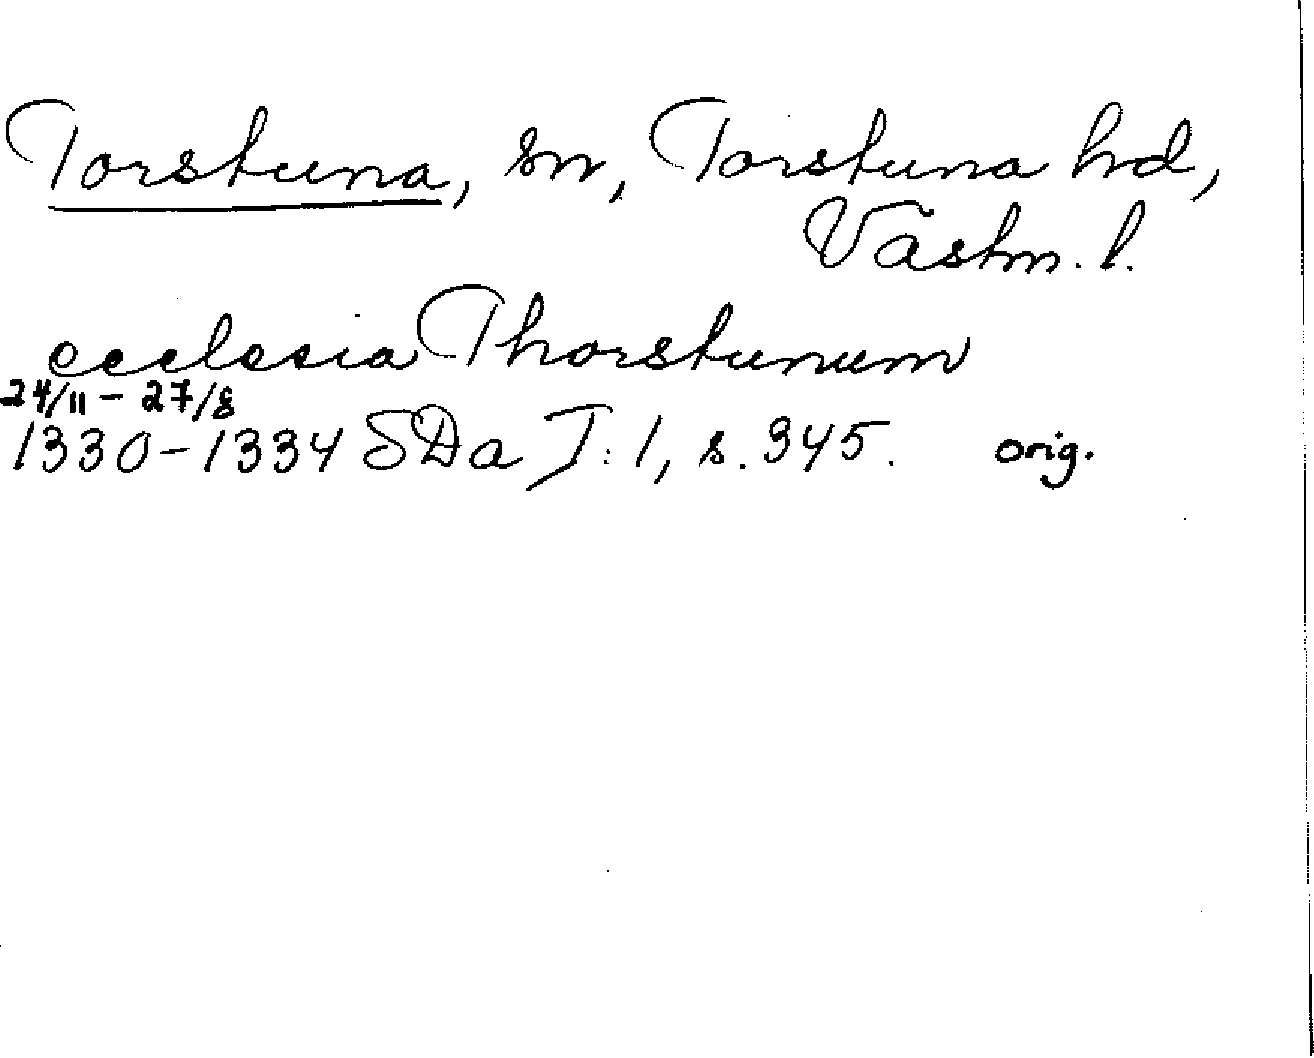 Torstuna, sn, Torstuna hd,
Västm. l.
ecclesia Thorstunum
24/11 - 27/8
1330-1334 SDa I: 1, s. 345. orig.